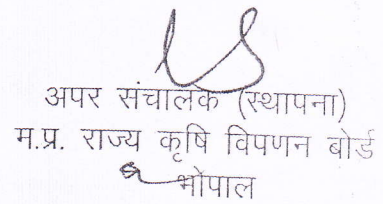 अपर संचालक (स्थापना)
म.प्र. राज्य कृषि विपणन बोर्ड
भोपाल